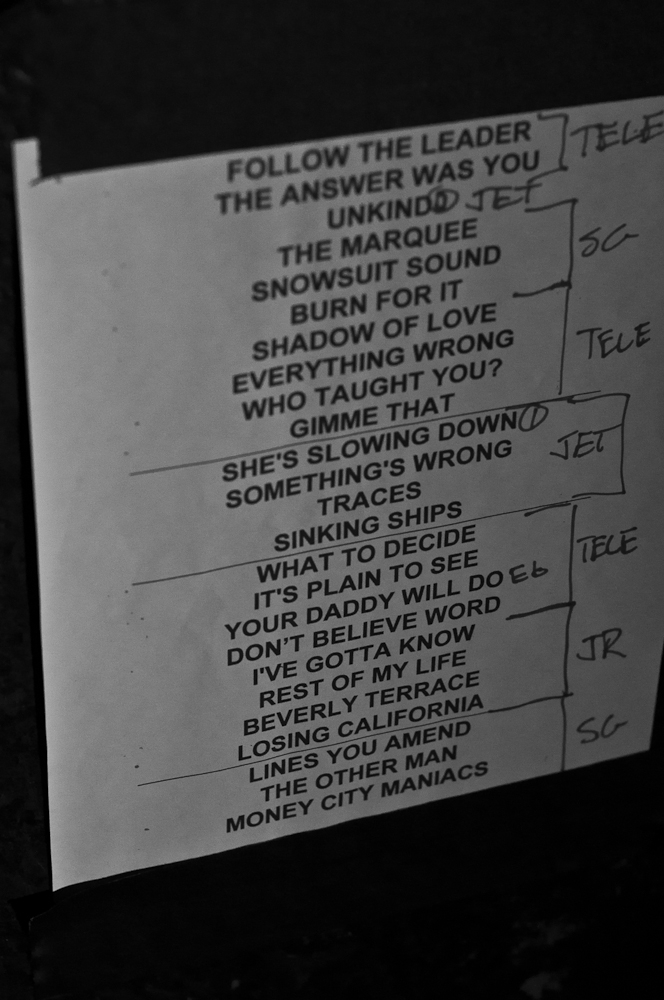 FOLLOW THE LEADER TELE
THE ANSWER WAS YOU
UNKIND① JET
THE MARQUEE SG
SNOWSUIT SOUND
BURN FOR IT
SHADOW OF LOVE
EVERYTHING WRONG TELE
WHO TAUGHT YOU?
GIMME THAT
SHE'S SLOWING DOWN①
SOMETHING'S WRONG JET
TRACES
SINKING SHIPS
WHAT TO DECIDE
IT'S PLAIN TO SEE TELE
YOUR DADDY WILL DO Eb
DON'T BELIEVE WORD
I'VE GOTTA KNOW
REST OF MY LIFE JR
BEVERLY TERRACE
LOSING CALIFORNIA
LINES YOU AMEND SG
THE OTHER MAN
MONEY CITY MANIACS